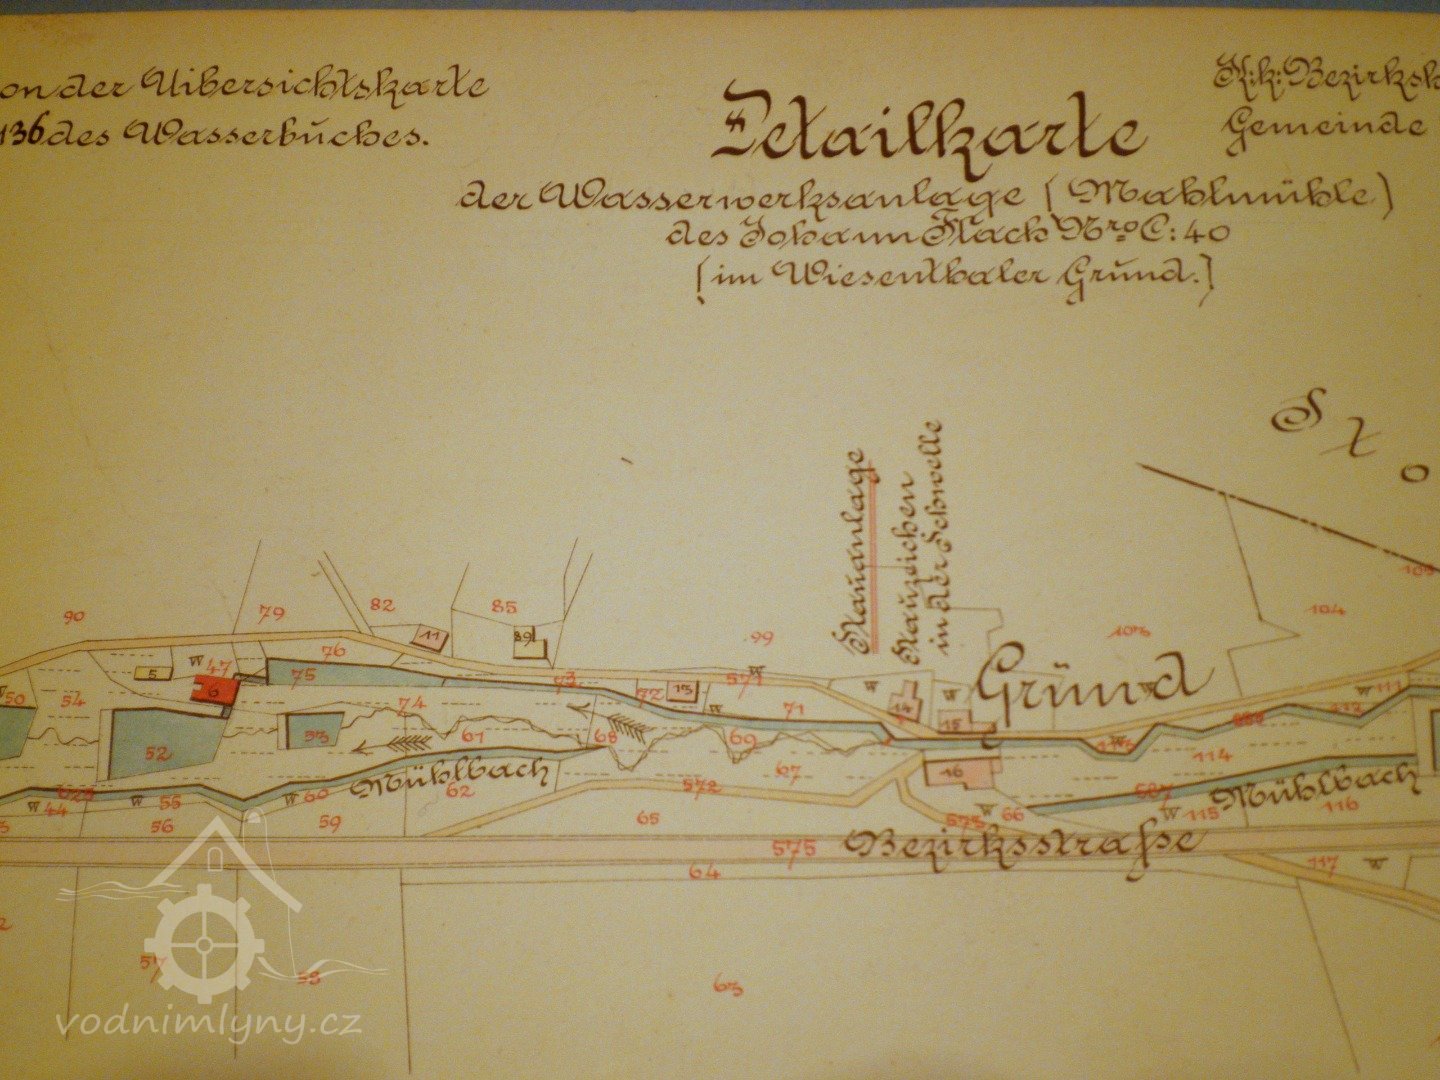 on der Uibersichtskarte
136 des Wasserbuches.
Detailkarte
der Wasserwerksanlage (Mahlmühle)
des Johann Flach Nro C: 40
(im Wiesenthaler Grund.)
K: k: Bezirksh
Gemeinde
S t o
Stauanlage
Stauzeichen
in der Schwelle
90 79 82 85 99 104 103 105
11 89 76 5 W 47 6 75
50 54 74 73 72 13 571 W
W 14 W 15 Grund W 111 112
52 53 61 68 69 71 W 67 16 114
Mühlbach Mühlbach
W 44 W 55 W 60 62 572 587
56 59 65 573 66 W 115 116
575 Bezirksstraße
64 117 W
57 58 63
vodnimlyny.cz